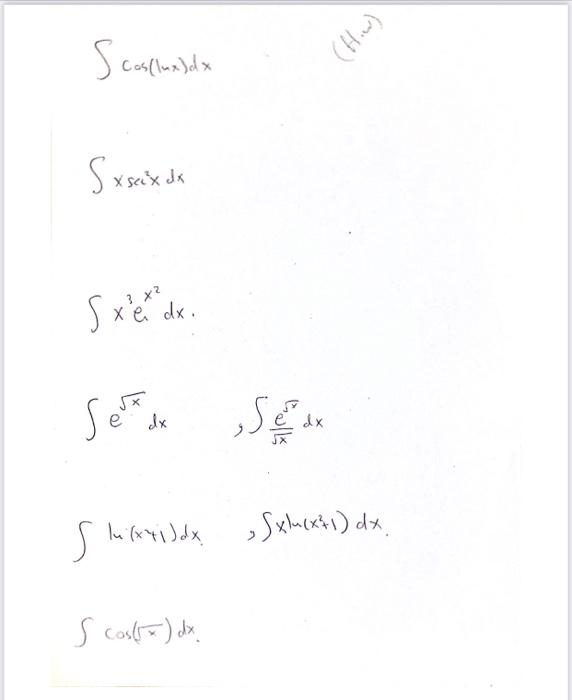 (H.w)
∫ cos(lnx)dx
∫ x sec²x dx
∫ x³ e^x² dx.
∫ e^√x dx , ∫ e^√x/√x dx
∫ ln(x²+1)dx , ∫ x ln(x²+1) dx.
∫ cos(√x) dx.